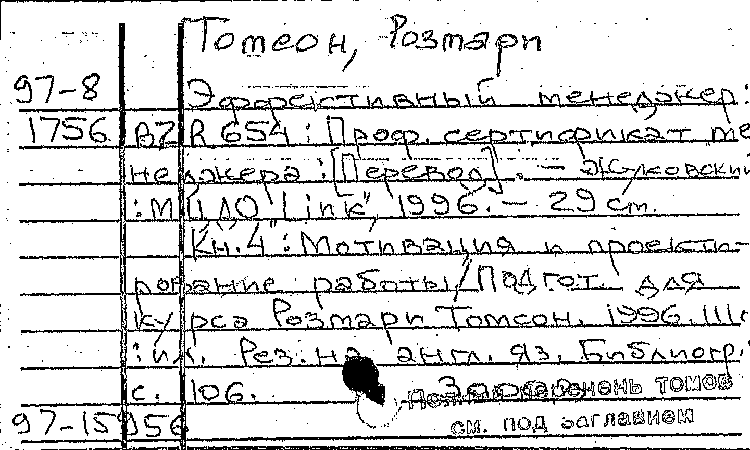 Томсон, Розмари
97-8 Эффективный менеджер:
1756 BZR 654 : Проф. сертификат ме
неджера : [Перевод]. – Жуковский
: МЦДО "Линк", 1996. – 29 см.
Кн. 4 : Мотивация и проекти-
рование работы / Подгот. для
курса Розмари Томсон. 1996. 111 с
: ил. Рез. на англ. яз. Библиогр.:
с. 106.
перечень томов
97-15956 см. под заглавием